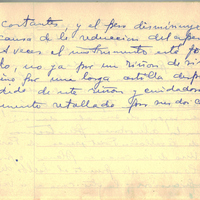 cortantes, y el peso disminuye
causa de la reducción del
A veces el instrumento está
do, no ya por un riñón de síl
sino por una larga astilla
dido de ute riñón y cuidadosa
mente retallado por sus dos c